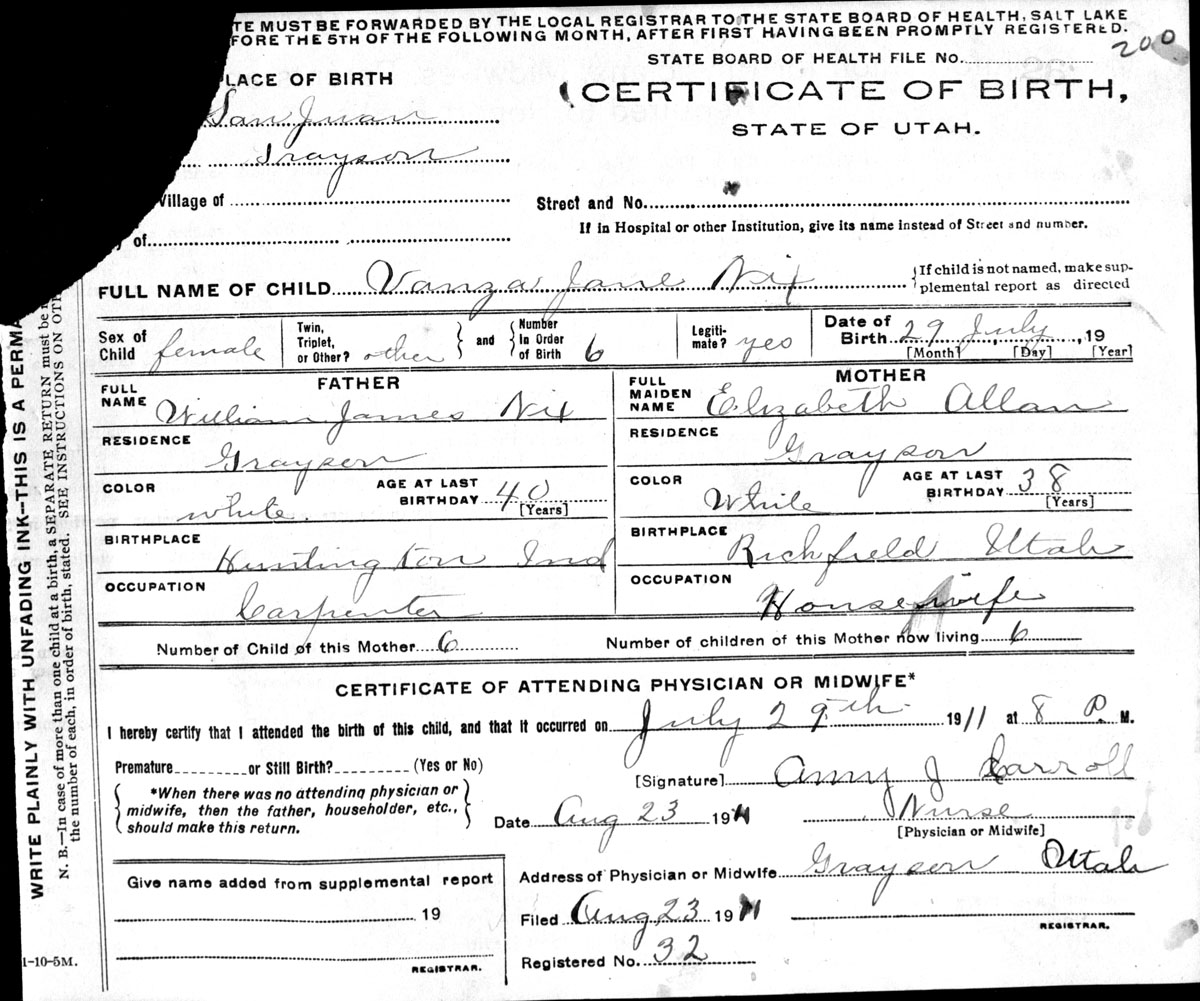 TE MUST BE FORWARDED BY THE LOCAL REGISTRAR TO THE STATE BOARD OF HEALTH, SALT LAKE
FORE THE 5TH OF THE FOLLOWING MONTH, AFTER FIRST HAVING BEEN PROMPTLY REGISTERED.
200
STATE BOARD OF HEALTH FILE No.
PLACE OF BIRTH
CERTIFICATE OF BIRTH,
STATE OF UTAH.
San Juan
Grayson
Village of
Street and No.
If in Hospital or other Institution, give its name instead of Street and number.
y of
FULL NAME OF CHILD Vanza Jane Nix {If child is not named, make sup-
plemental report as directed
Sex of Child female
Twin, Triplet, or Other? other } and { Number In Order of Birth 6
Legiti- mate? yes
Date of Birth 29 July, 19
[Month] [Day] [Year]
FATHER
FULL NAME William James Nix
RESIDENCE Grayson
COLOR white.
AGE AT LAST BIRTHDAY 40 [Years]
BIRTHPLACE Huntington Ind
OCCUPATION Carpenter
MOTHER
FULL MAIDEN NAME Elizabeth Allan
RESIDENCE Grayson
COLOR White
AGE AT LAST BIRTHDAY 38 [Years]
BIRTHPLACE Richfield Utah
OCCUPATION Housewife
Number of Child of this Mother 6 Number of children of this Mother now living 6
CERTIFICATE OF ATTENDING PHYSICIAN OR MIDWIFE*
I hereby certify that I attended the birth of this child, and that it occurred on July 29th 1911 at 8 P. M.
Premature or Still Birth? (Yes or No)
[Signature] Amy J Carroll
{ *When there was no attending physician or
midwife, then the father, householder, etc.,
should make this return. }
Date Aug 23 1911 Nurse
[Physician or Midwife]
Address of Physician or Midwife Grayson Utah
Give name added from supplemental report
19
REGISTRAR.
Filed Aug 23 1911
REGISTRAR.
Registered No. 32
1-10-5M.
WRITE PLAINLY WITH UNFADING INK—THIS IS A PERMA
N. B.—In case of more than one child at a birth, a SEPARATE RETURN must be
the number of each, in order of birth, stated. SEE INSTRUCTIONS ON OTH